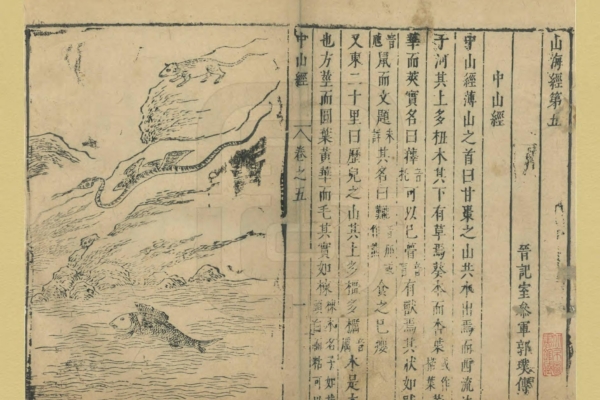 山海經第五
晉記室參軍郭璞傳
中山經
中山經薄山之首曰甘棗之山共水出焉而西流注
于河其上多杻木其下有草焉葵本而杏葉
華而莢實名曰籜可以已瞢有獸焉其狀如
鼠而文題其名曰食之已癭
又東二十里曰歷兒之山其上多橿多櫔木是木
也方莖而圓葉黃華而毛其實如楝
中山經
卷之五
一